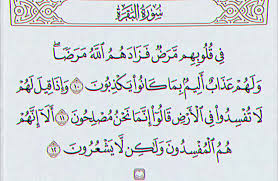 سُورَةُ الْبَقَرَةِ
فِي قُلُوبِهِم مَّرَضٌ فَزَادَهُمُ اللَّهُ مَرَضًا ۖ
وَلَهُمْ عَذَابٌ أَلِيمٌ بِمَا كَانُوا يَكْذِبُونَ ١٠ وَإِذَا قِيلَ لَهُمْ
لَا تُفْسِدُوا فِي الْأَرْضِ قَالُوا إِنَّمَا نَحْنُ مُصْلِحُونَ ١١ أَلَا إِنَّهُمْ
هُمُ الْمُفْسِدُونَ وَلَٰكِن لَّا يَشْعُرُونَ ١٢